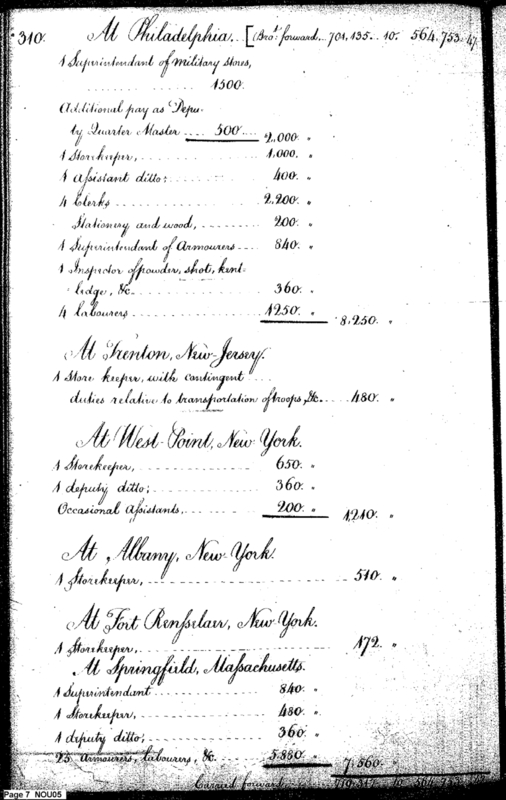 310. At Philadelphia. [Bro.t forward... 701,135.. 10. 564,753. 47.
1 Superintendant of military stores,
1500.
Additional pay as Depu-
ty Quarter Master .... 500 ... 2,000. "
1 Storekeeper, 1,000. "
1 Assistant ditto; 400. "
4 Clerks 2,200. "
Stationery and wood, 200. "
1 Superintendant of Armourers 840. "
1 Inspector of powder, shot, kent-
ledge, &c. 360. "
4 labourers 1250. " 8,250. "
At Trenton, New-Jersey.
1 Store keeper, with contingent
duties relative to transportation of troops, &c. 480. "
At West-Point, New-York.
1 Storekeeper, 650. "
1 deputy ditto; 360. "
Occasional Assistants, 200. " 1,210. "
At Albany, New-York.
1 Storekeeper, 510. "
At Fort Rensselaer, New-York.
1 Storekeeper, 172. "
At Springfield, Massachusetts.
1 Superintendant 840. "
1 Storekeeper, 480. "
1 deputy ditto; 360. "
25 armourers, labourers, &c. 5,880. " 7,560. "
Carried forward
Page 7 NOU05